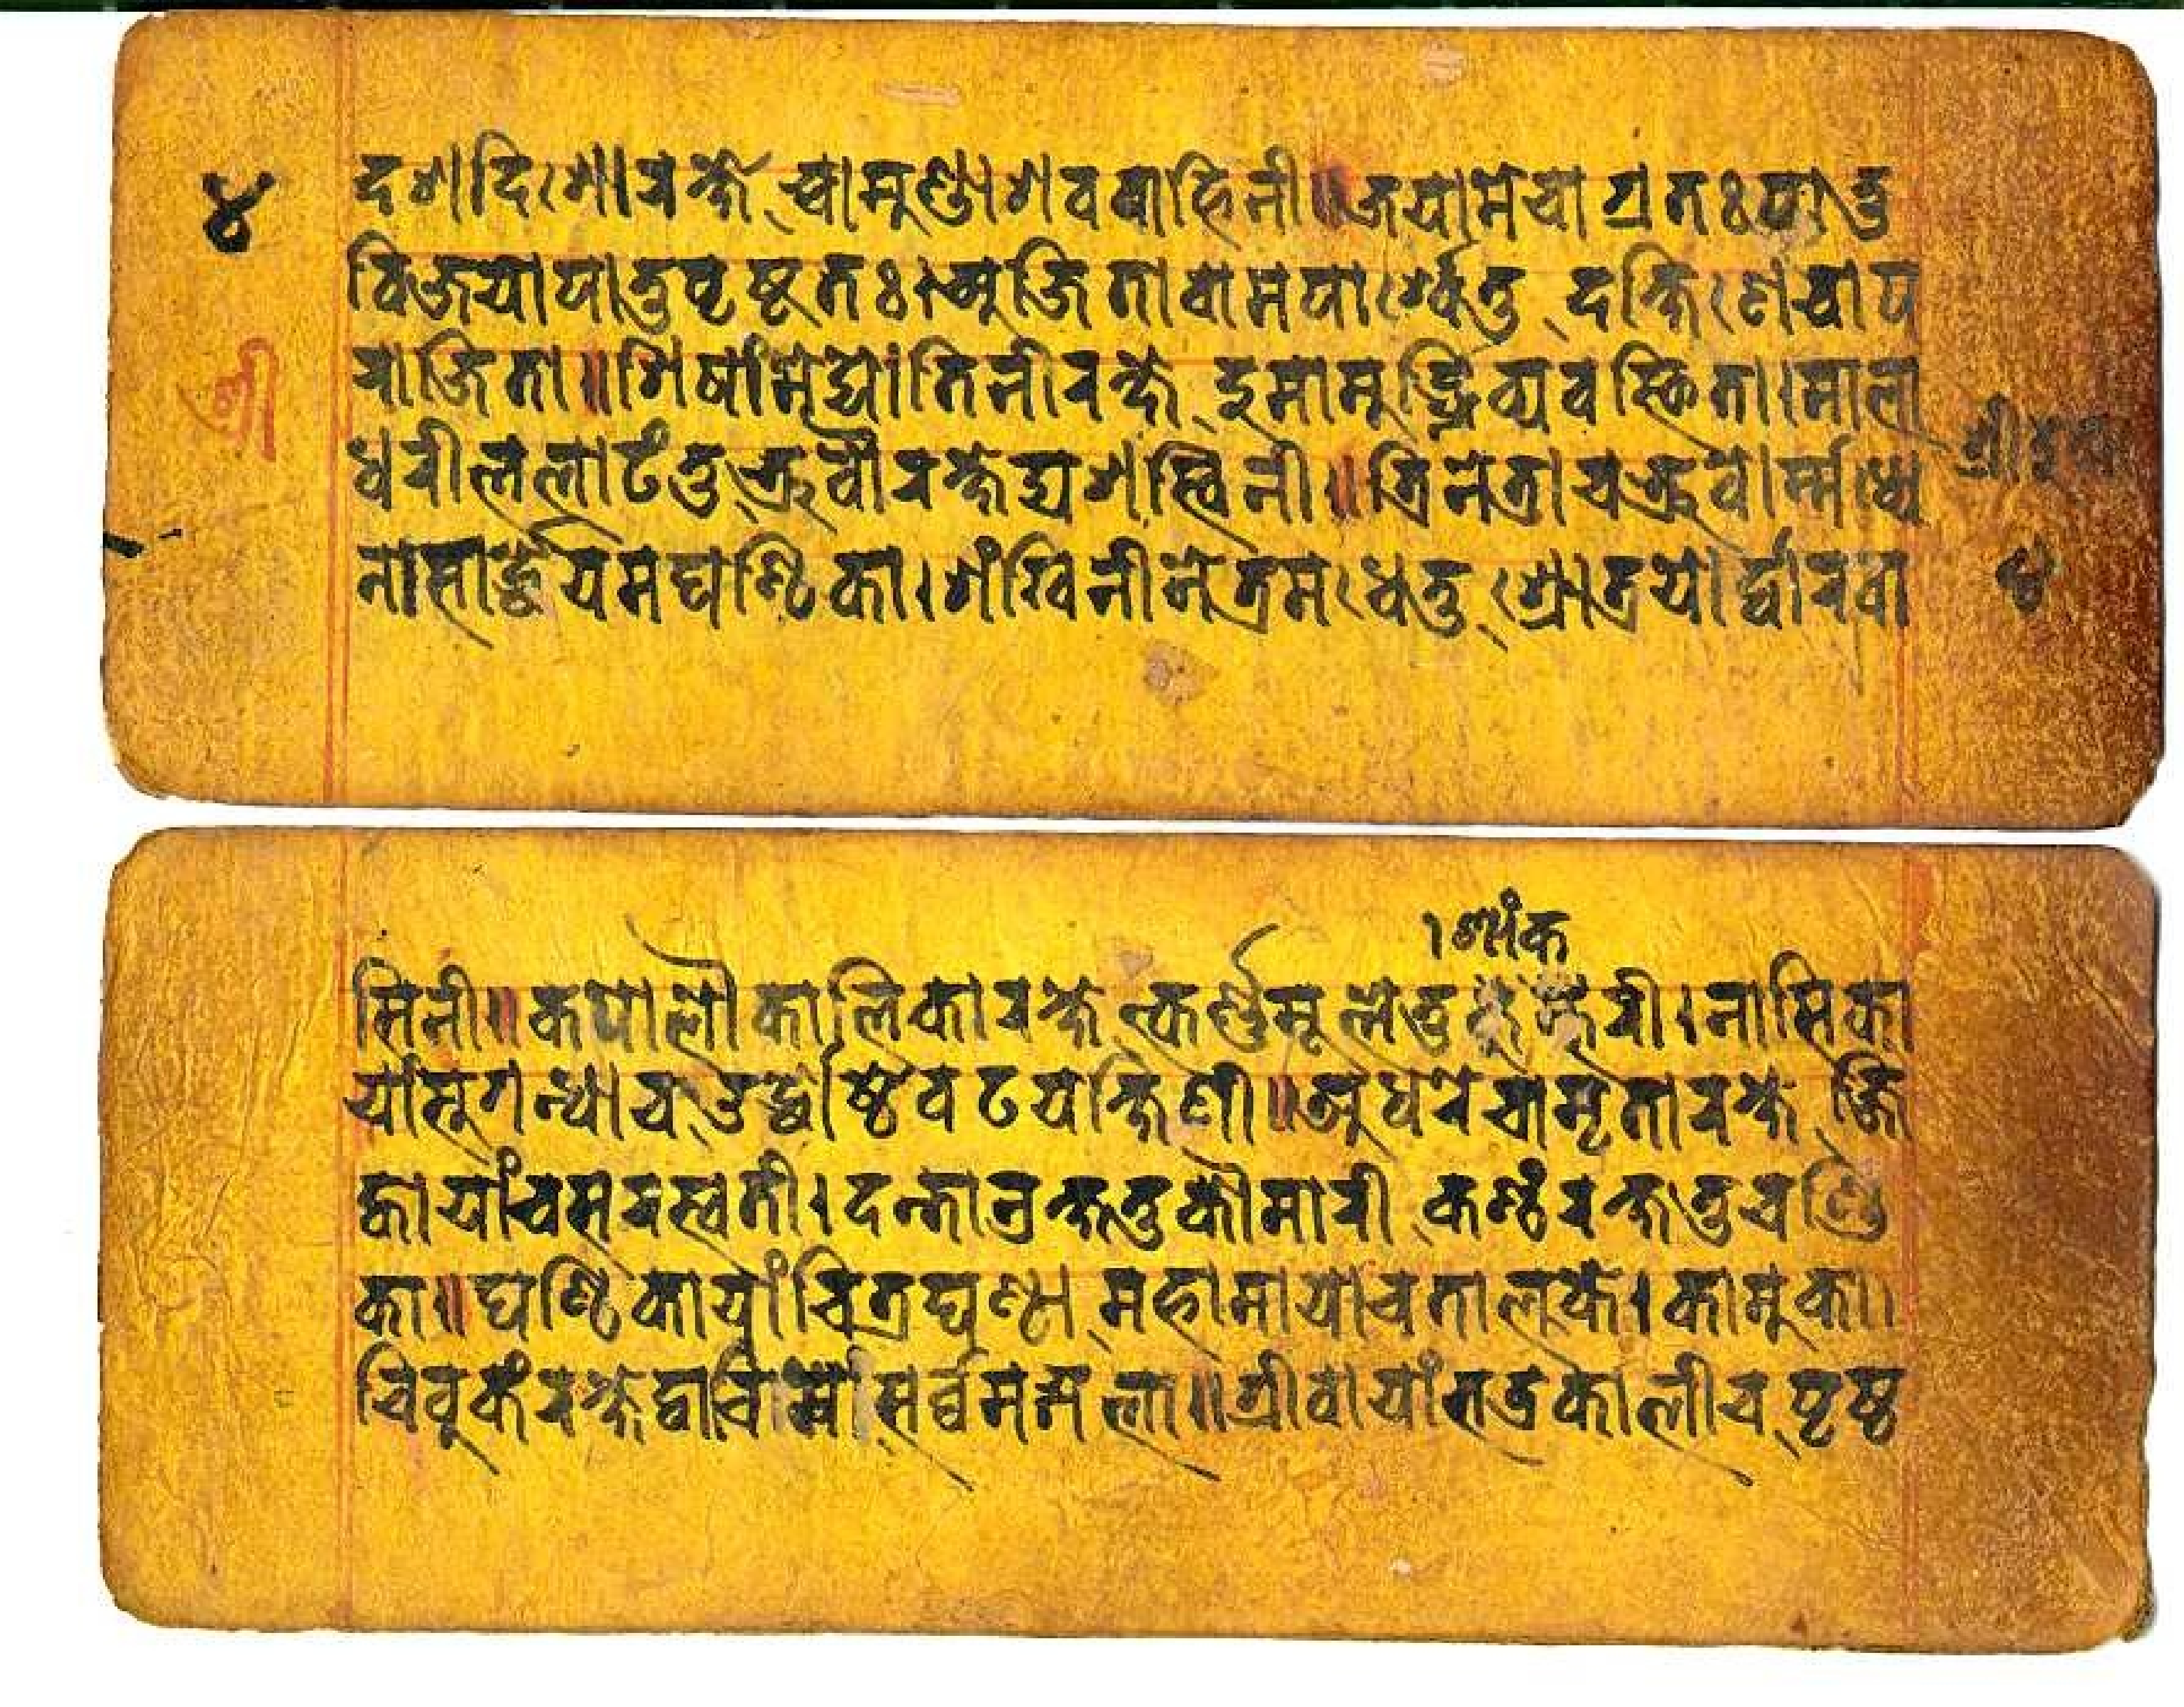 ४
दशदिशोरक्षे चामूण्डाशववाहिनी॥जयामेचाग्रतःपातु
विजयापातुपृष्टतः।अजितावामपार्श्वेतु दक्षिणेचाप
राजिता॥शिषांमेद्योतिनीरक्षे इमामूर्द्ध्निव्यवस्थिता।माला
श्री
धरीललाटंतु भ्रूवौरक्षेद्यशस्विनी॥त्रिनेत्राचभ्रूवोर्म्मध्ये
नासार्द्धेयमघण्टिका।शंखिनीनेत्रमध्येतु श्रोत्रयोर्द्वारवा
४
।शांक
सिनी॥कपालौकालिकारक्षे त्कर्ण्णमूलेतु री।नासिका
यांसुगन्धाच उर्द्धोष्ठेवटयक्षिणी॥अधरेचामृतारक्षे जि
ह्वायांचसरस्वती।दन्तान्रक्षतुकौमारी कण्ठंरक्षतुचण्डि
का॥घण्टिकायांचित्रघण्टा महामायाचतालुके।कामुका।
चिवूकंरक्षेद्वाचिंमेसर्व्वमङ्गला॥ग्रीवायांभद्रकालीच पृष्ठ